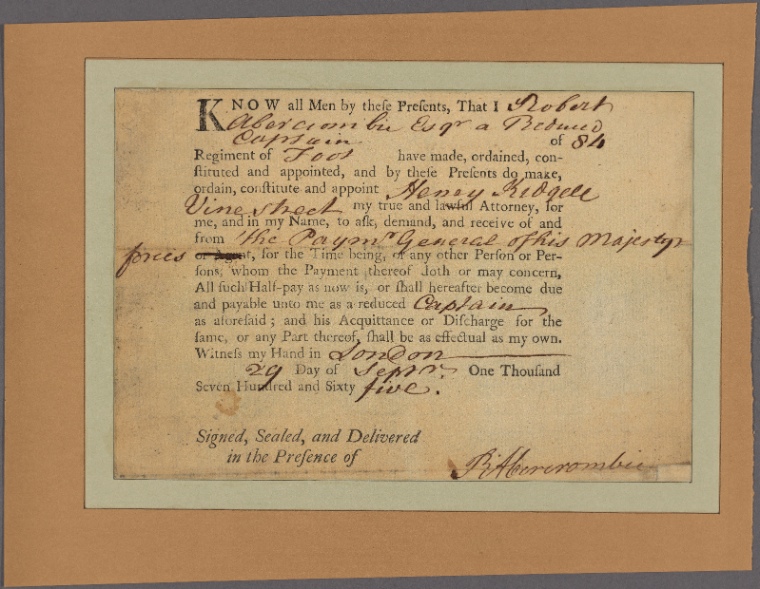 KNOW all Men by theſe Preſents, That I Robert
Abercrombie Esqr a Reduced
Captain of 84
Regiment of Foot have made, ordained, con-
ſtituted and appointed, and by theſe Preſents do make,
ordain, conſtitute and appoint Henry Ridgell
Vine street my true and lawful Attorney, for
me, and in my Name, to aſk, demand, and receive of and
from the Paymr General of his Majestys
forces or Agent, for the Time being, or any other Perſon or Per-
ſons, whom the Payment thereof doth or may concern,
All ſuch Half-pay as now is, or ſhall hereafter become due
and payable unto me as a reduced Captain
as aforeſaid; and his Acquittance or Diſcharge for the
ſame, or any Part thereof, ſhall be as effectual as my own.
Witneſs my Hand in London
29 Day of Septr. One Thouſand
Seven Hundred and Sixty five.
Signed, Sealed, and Delivered
in the Preſence of
Rt Abercrombie